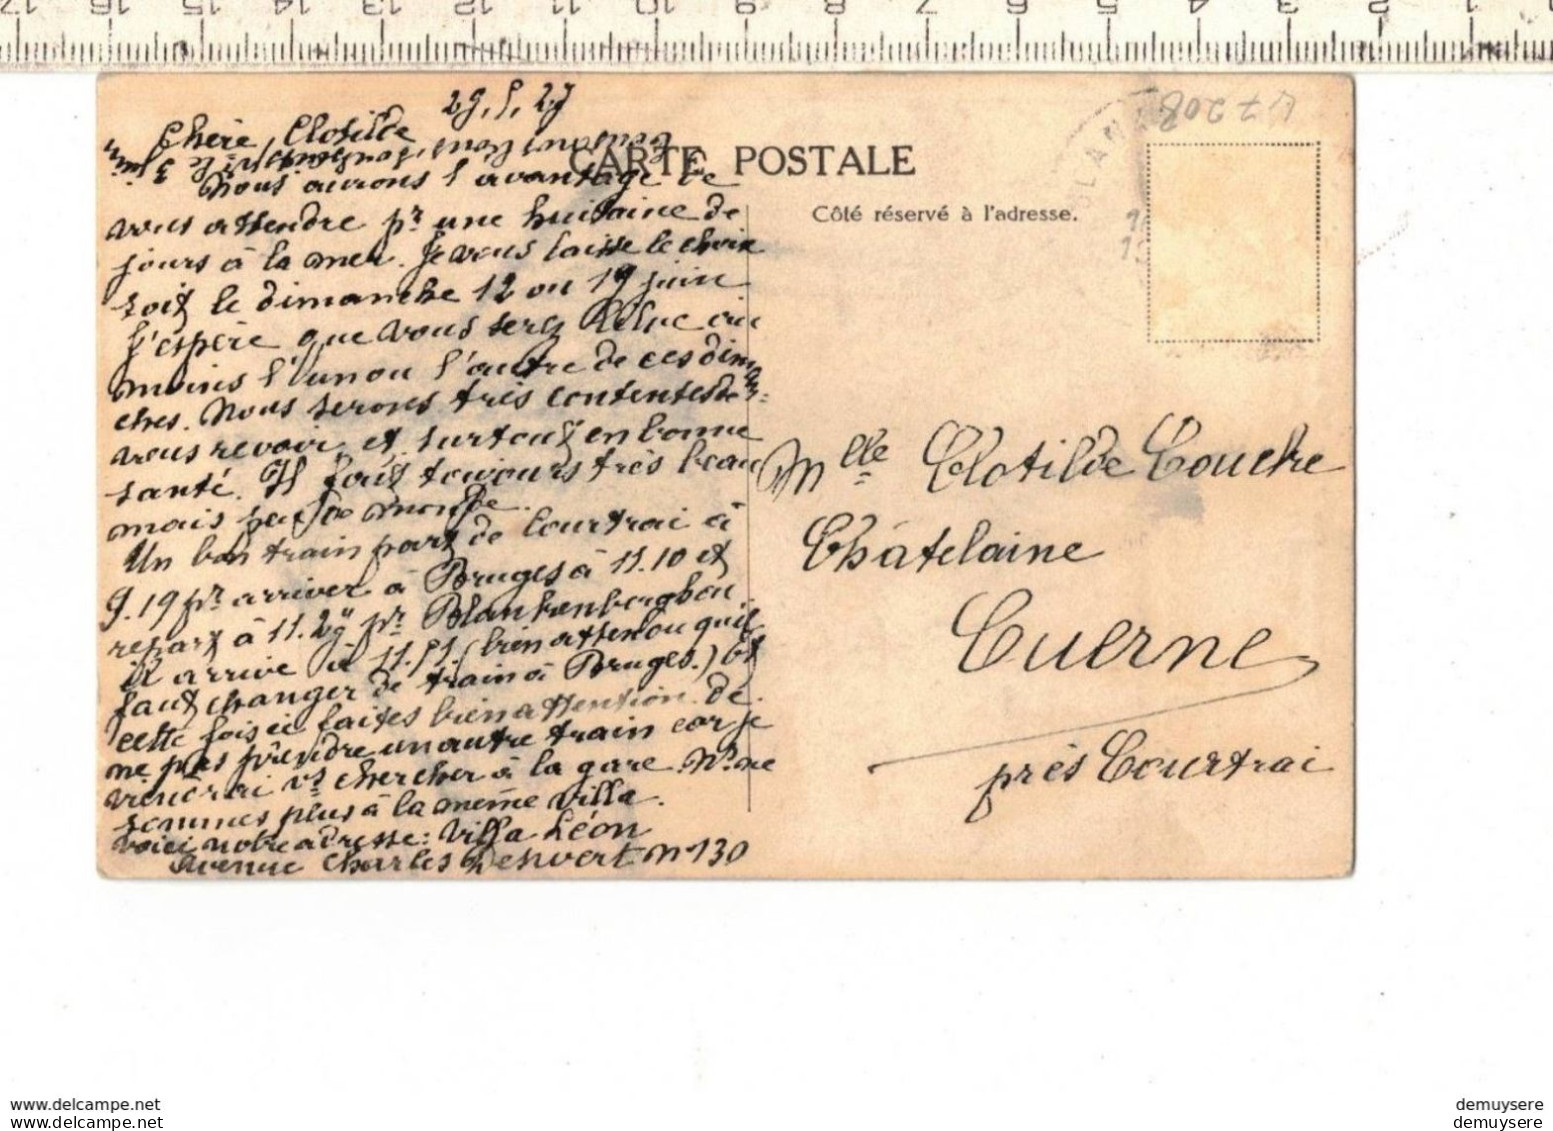 17 16 15 14 13 12 11 10 9 8 7 6 5 4 3 2 1
29.5.27
Chère Clotilde
CARTE POSTALE
Côté réservé à l'adresse.
BLAN
V 7 208
Nous aurons l'avantage de
vous attendre pr une huitaine de
jours à la mer. Je vous laisse le choix
soit le dimanche 12 ou 19 juin
J'espère que vous serez libre au
moins l'un ou l'autre de ces diman
ches. Nous serons très contentes de
vous revoir et surtout en bonne
santé. Il fait toujours très beau
mais peu de monde.
Un bon train part de Courtrai à
9.19 pr arriver à Bruges à 11.10 et
repart à 11.29 pr Blankenberghe ou
il arrive à 11.51 (bien attention qu'il
faut changer de train à Bruges.) Et
cette fois ci faites bien attention de
ne pas prendre un autre train car je
viendrai vs chercher à la gare. Ns ne
sommes plus à la même villa.
voici notre adresse: Villa Léon
Avenue Charles Desnvert n° 130
Mlle Clotilde Coucke
Châtelaine
Cuerne
près Courtrai
demuysere
demuysere
https://www.delcampe.net
https://www.delcampe.net